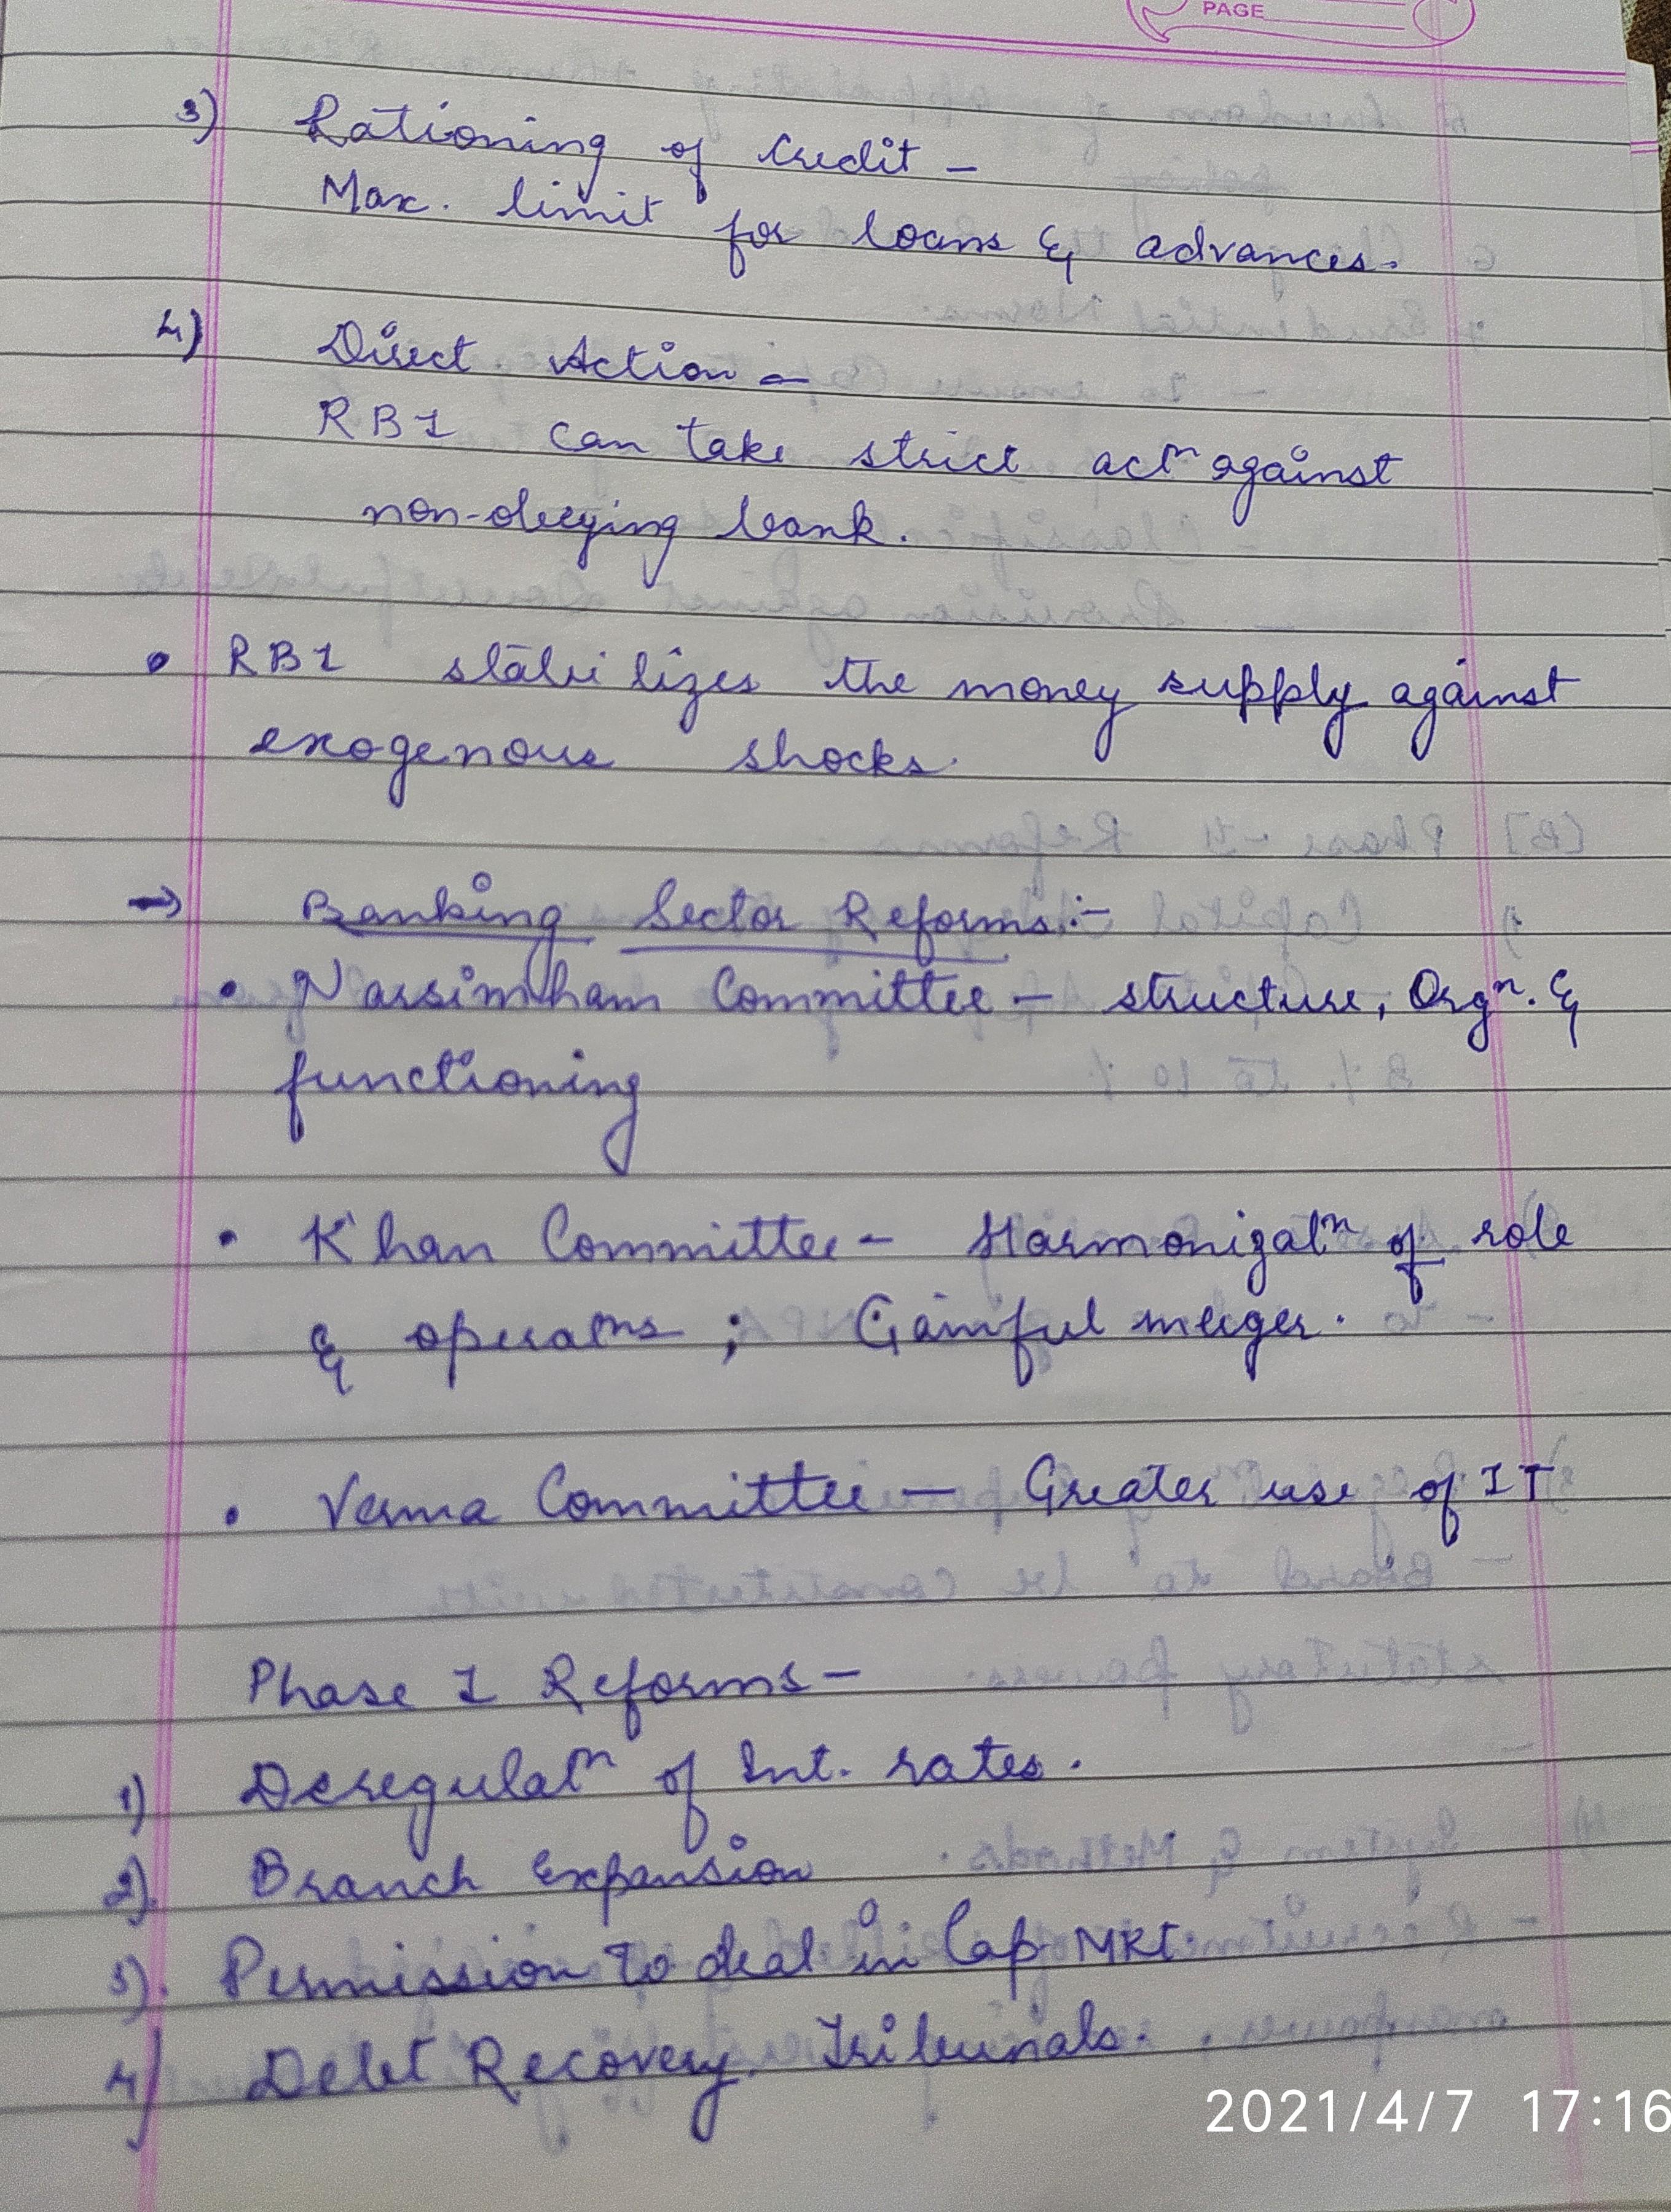 PAGE
3) Rationing of Credit -
Max. limit for loans & advances.
4) Direct Action -
RBI can take strict actn against
non-obeying bank.
• RBI stabilizes the money supply against
exogenous shocks.
→ Banking Sector Reforms :-
• Narsimham Committee - structure, Orgn. &
functioning
• Khan Committee - Harmonizatn of role
& operatns ; Gainful merger.
• Verma Committee - Greater use of IT
Phase I Reforms -
1) Deregulatn of Int. rates.
2). Branch Expansion
3). Permission to deal in Cap MKt.
4) Debt Recovery Tribunals.
2021/4/7 17:16